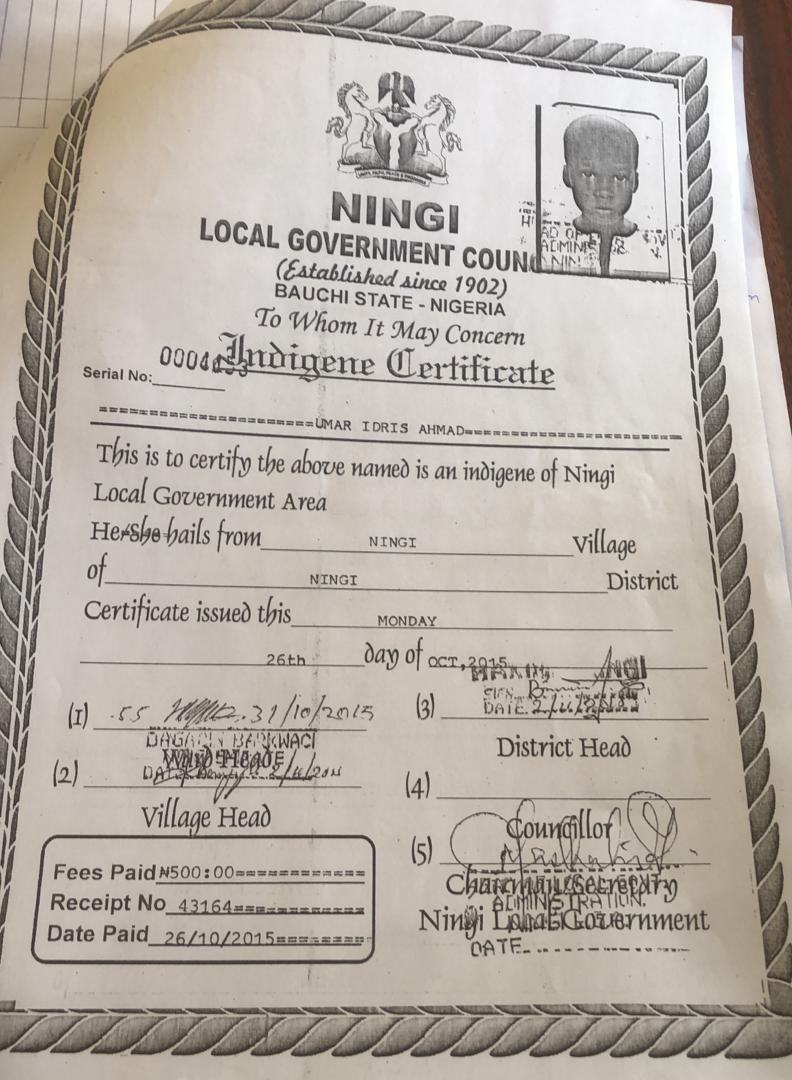 NINGI
LOCAL GOVERNMENT COUN
(Established since 1902)
BAUCHI STATE - NIGERIA
To Whom It May Concern
Indigene Certificate
Serial No:
UMAR IDRIS AHMAD
This is to certify the above named is an indigene of Ningi
Local Government Area
He/She hails from NINGI Village
of NINGI District
Certificate issued this MONDAY
26th day of OCT, 2015
(1) 31/10/2015
(3)
DATE
Ward Head
District Head
(2)
(4)
Village Head
Councillor
(5)
Chairman/Secretary
ADMINISTRATION.
Ningi Local Government
DATE
Fees Paid ₦500:00
Receipt No 43164
Date Paid 26/10/2015